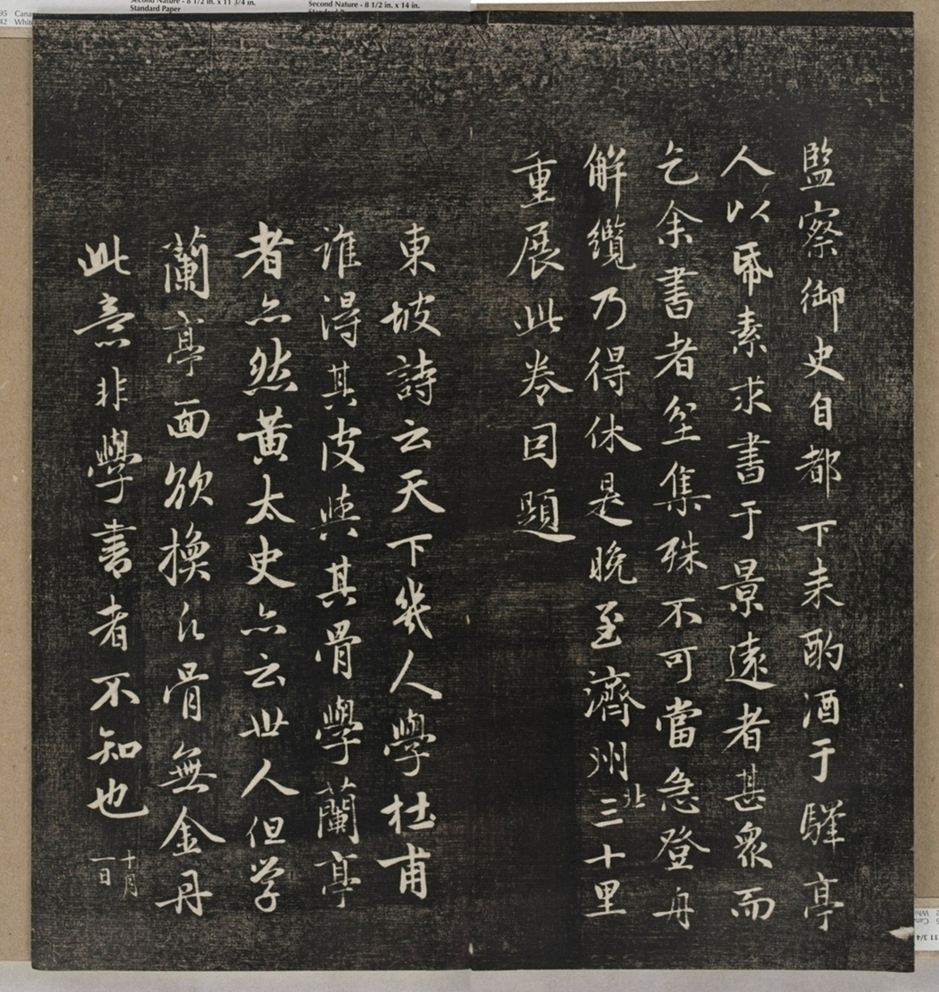 監察御史自都下来酌酒于驛亭
人以帋素求書于景遠者甚衆而
乞余書者坌集殊不可當急登舟
解纜乃得休是晚至濟州北三十里
重展此卷因題
東坡詩云天下幾人學杜甫
誰得其皮與其骨學蘭亭
者亦然黃太史亦云世人但学
蘭亭面欲換凡骨無金丹
此意非學書者不知也十月一日
Second Nature - 8 1/2 in. x 11 3/4 in.
Standard Paper
Second Nature - 8 1/2 in. x 14 in.